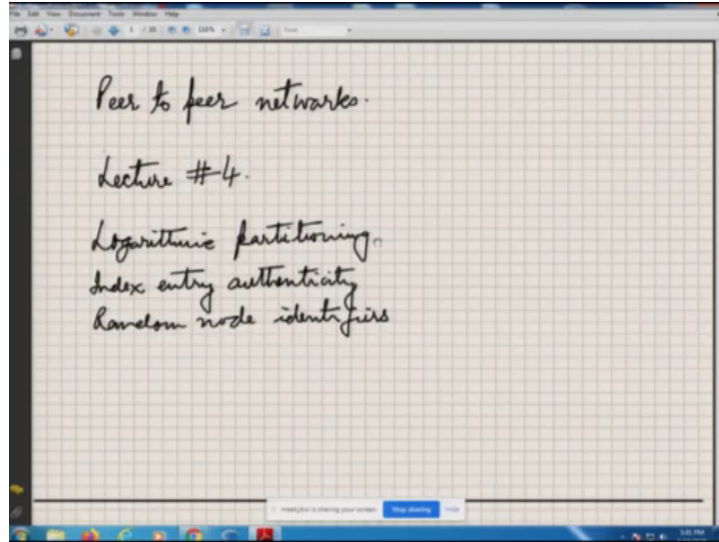 File Edit View Document Tools Window Help
1 / 35 110% Find
Peer to peer networks.
Lecture #4.
Logarithmic partitioning.
Index entry authenticity
Random node identifiers
is sharing your screen. Stop sharing Hide
5:41 PM